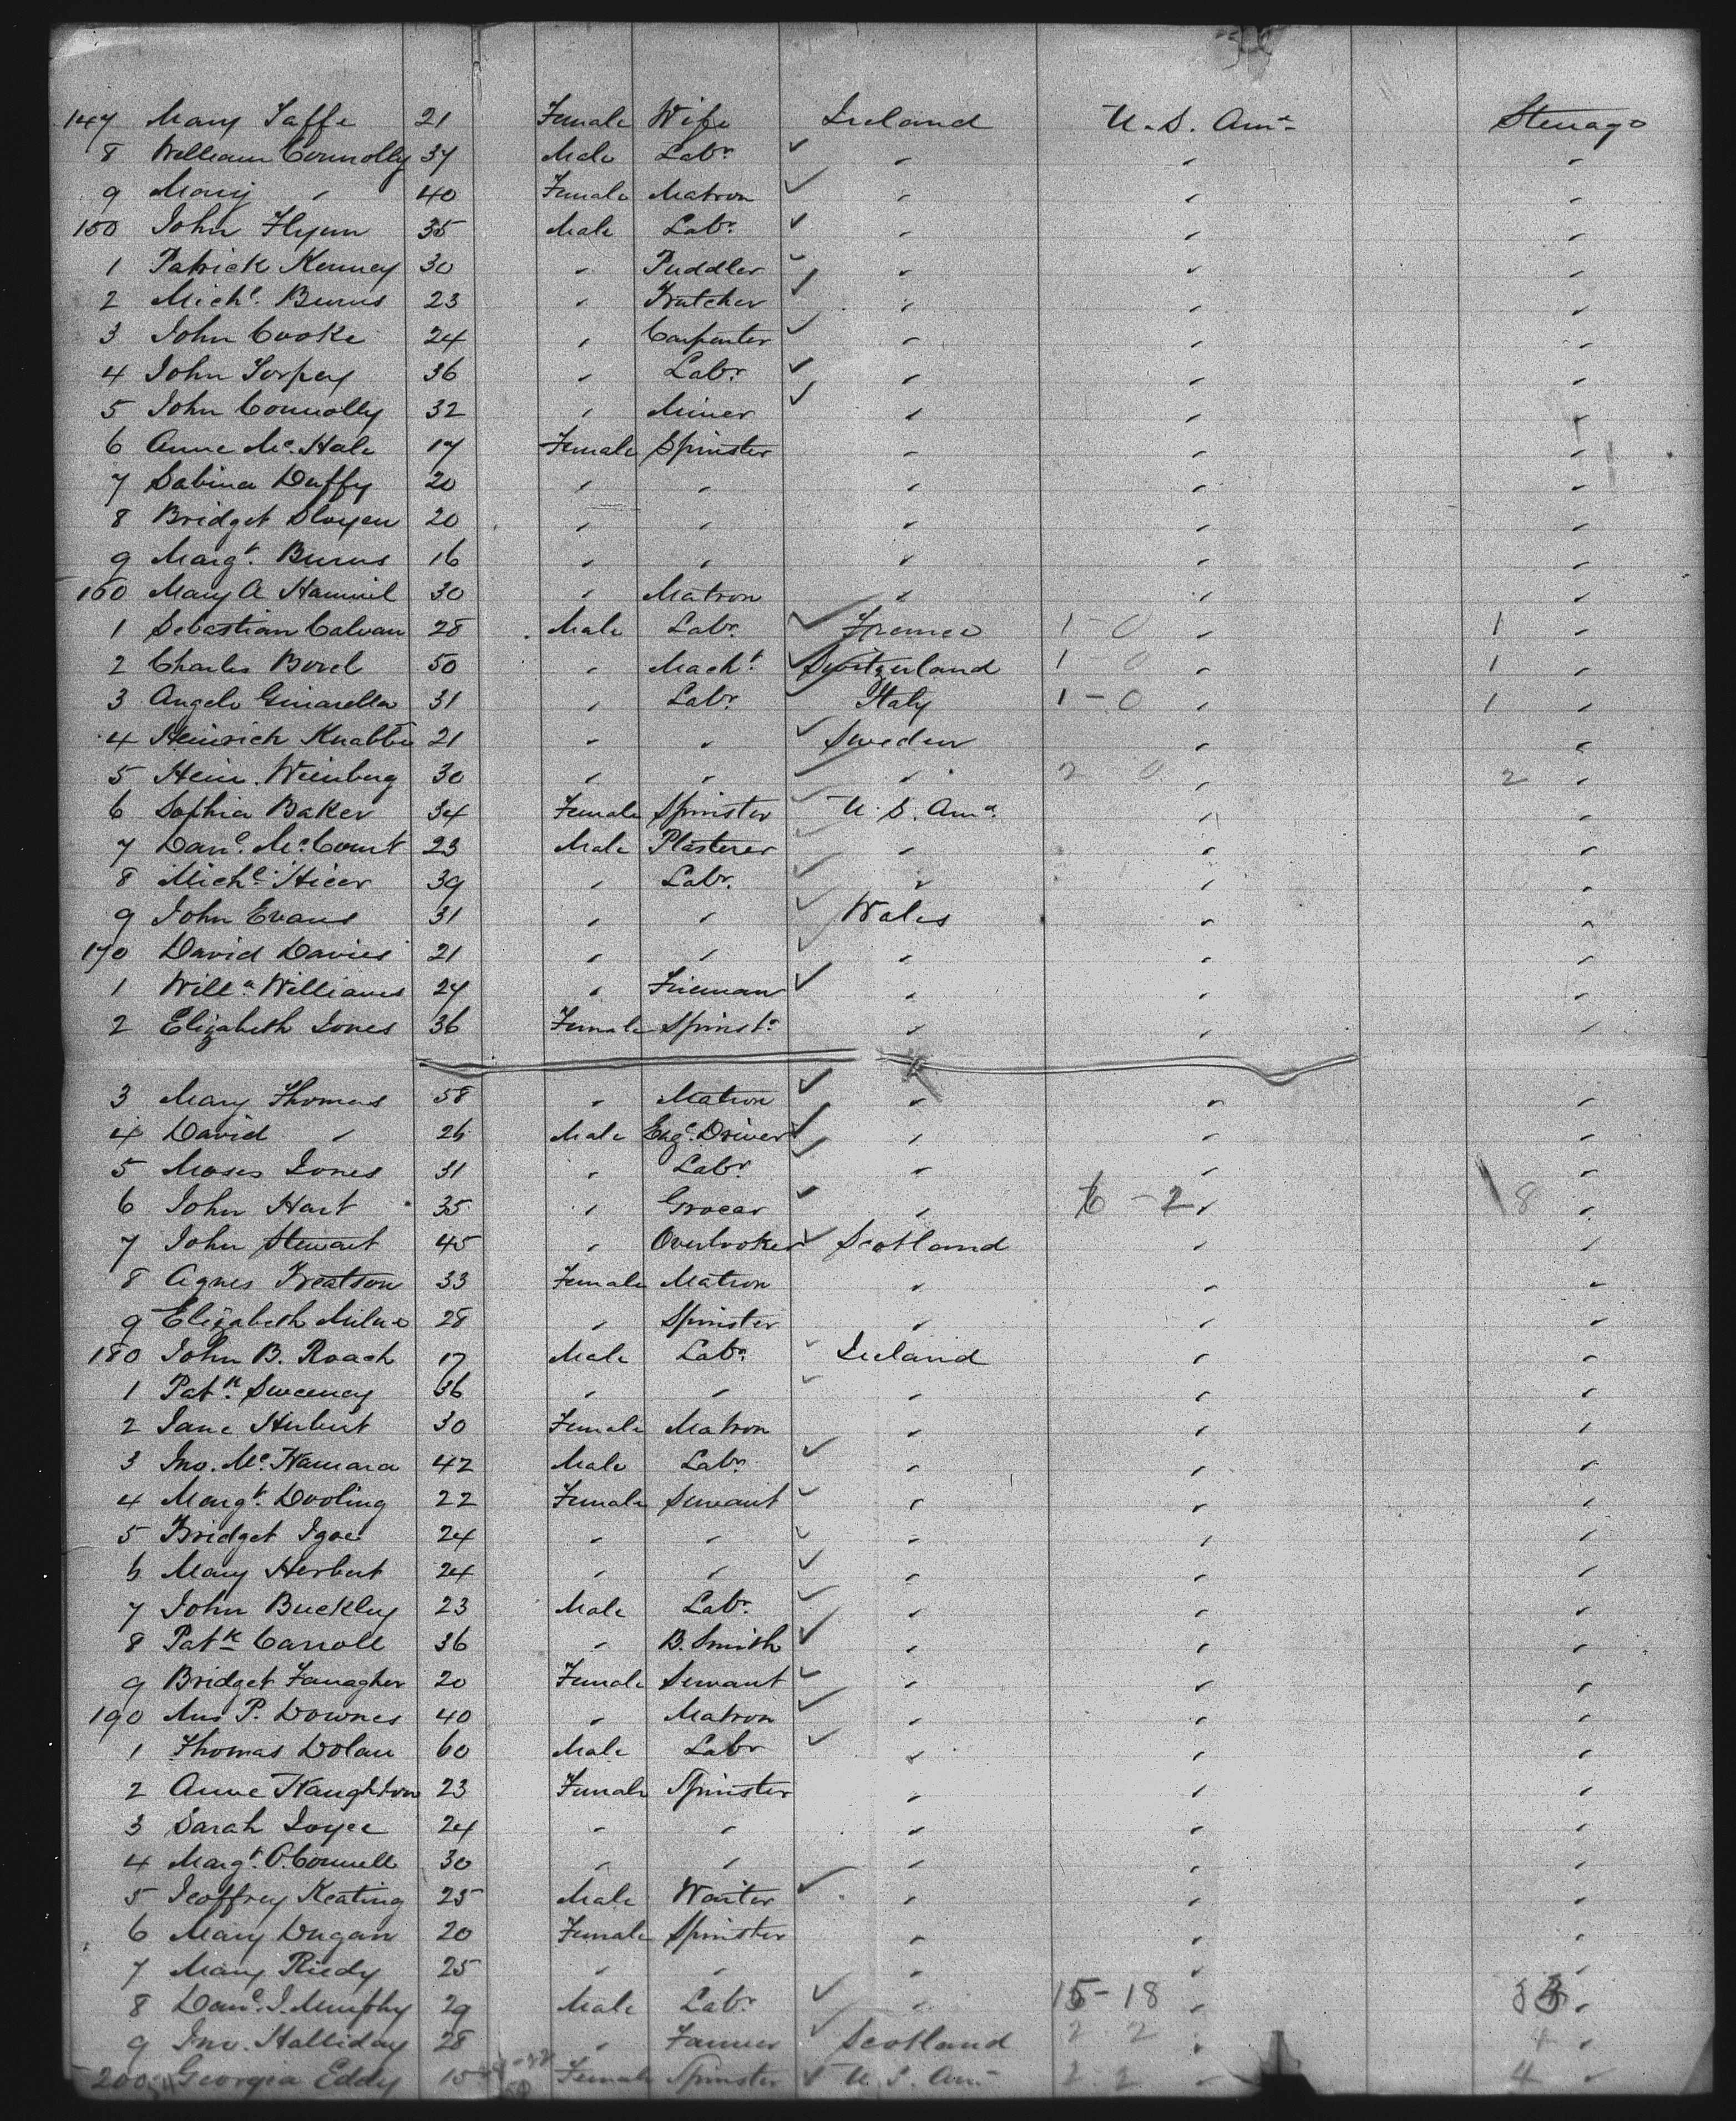 147 Mary Taffe 21 Female Wife Ireland U. S. Ama Steerage
8 William Connolly 37 Male Labr ✓ " " "
9 Mary " 40 Female Matron ✓ " " "
150 John Flynn 35 Male Labr ✓ " " "
1 Patrick Kenney 30 " Puddler ✓ " " "
2 Michl. Burns 23 " Butcher ✓ " " "
3 John Cooke 24 " Carpenter ✓ " " "
4 John Torpey 36 " Labr. ✓ " " "
5 John Connolly 32 " Miner ✓ " " "
6 Anne Mc Hale 17 Female Spinster " " "
7 Sabina Duffy 20 " " " " "
8 Bridget Sloyen 20 " " " " "
9 Margt. Burns 16 " " " " "
160 Mary A Hammil 30 " Matron " " "
1 Sebastian Calvan 28 Male Labr. ✓ France 1-0 " 1 "
2 Charles Borel 50 " Macht. ✓ Switzerland 1-0 " 1 "
3 Angelo 31 " Labr. ✓ Italy 1-0 " 1 "
4 Heinrich 21 " " ✓ Sweden " "
5 Hein. Weinberg 30 " " ✓ " 2 0 " 2 "
6 Sophia Baker 34 Female Spinster ✓ U. S. Ama " "
7 Danl. Mc Court 23 Male Plasterer ✓ " " "
8 Michl. 39 " Labr. ✓ " " "
9 John Evans 31 " " ✓ Wales " "
170 David Davies 21 " " ✓ " " "
1 Willm Williams 24 " Fireman ✓ " " "
2 Elizabeth Jones 36 Female Spinstr " " "
3 Mary Thomas 58 " Matron ✓ " " "
4 David " 26 Male Enge. Driver ✓ " " "
5 Moses Jones 31 " Labr ✓ " " "
6 John Hart 35 " Grocer ✓ " 6-2 " 8 "
7 John Stewart 45 " Overlooker ✓ Scotland " "
8 Agnes 33 Female Matron " " "
9 Elizabeth Milne 28 " Spinster " " "
180 John B. Roach 17 Male Labr ✓ Ireland " "
1 Patk. Sweeney 36 " " ✓ " " "
2 Jane Herbert 30 Female Matron " " "
3 Jno. Mc Namara 42 Male Labr. ✓ " " "
4 Margt. Dooling 22 Female Servant ✓ " " "
5 Bridget Igoe 24 " " ✓ " " "
6 Mary Herbert 24 " " ✓ " " "
7 John Buckley 23 Male Labr. ✓ " " "
8 Patk Carroll 36 " B. Smith ✓ " " "
9 Bridget Fanagher 20 Female Servant ✓ " " "
190 Mrs P. Downes 40 " Matron ✓ " " "
1 Thomas Dolan 60 Male Labr ✓ " " "
2 Anne Naughton 23 Female Spinster " " "
3 Sarah Joyce 24 " " " " "
4 Margt. O'Connell 30 " " " " "
5 Geoffrey Keating 25 Male Waiter ✓ " " "
6 Mary Dugan 20 Female Spinster " " "
7 Mary Riedy 25 " " " " "
8 Danl. J. Murphy 29 Male Labr. ✓ " 15-18 " 33 "
9 Jno. Halliday 28 " Farmer ✓ Scotland 2 2 " 4 "
200 Georgia Eddy 15 Female Spinster ✓ U. S. Ama 2-2 " 4 "